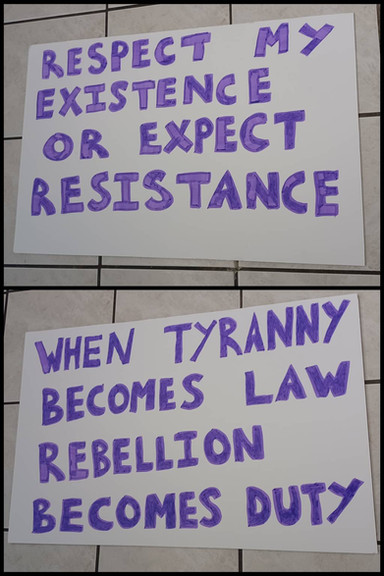 RESPECT MY
EXISTENCE
OR EXPECT
RESISTANCE
WHEN TYRANNY
BECOMES LAW
REBELLION
BECOMES DUTY